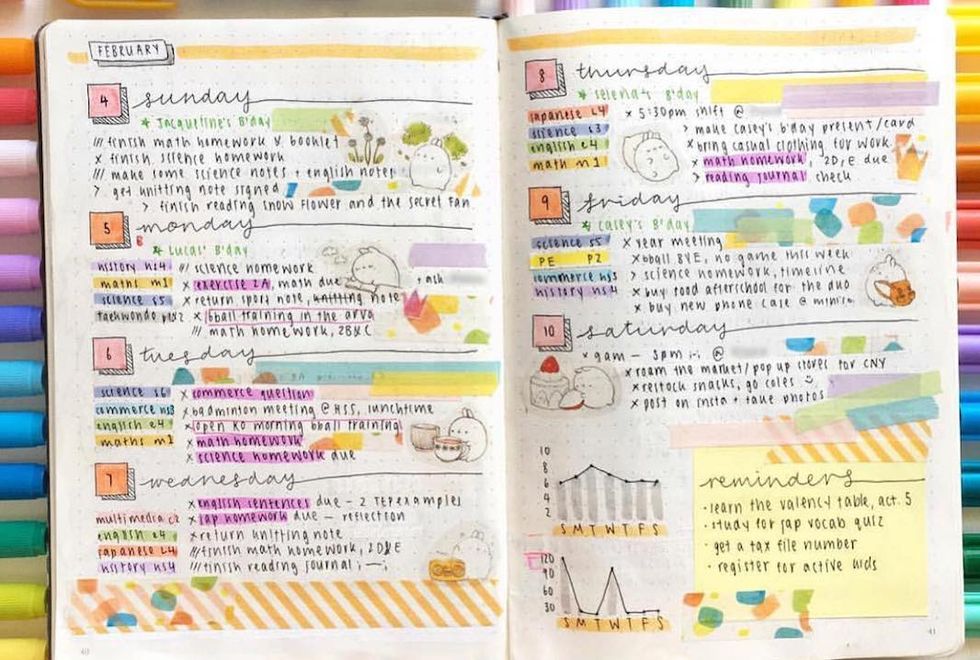 FEBRUARY
4 sunday
* Jacqueline's B'day
/// finish math homework & booklet
× finish science homework
/// make some science notes + english notes
> get knitting note signed
> finish reading snow flower and the secret fan
5 monday
* Lucas' B'day
history ns4 /// science homework
maths m1 × exercise 2A, math due + ask
science s5 × return sport note, knitting note
taekwondo × bball training in the arvo
/// math homework, 2B&C
6 tuesday
science s6 × commerce question
commerce ns3 × badminton meeting @ HSS, lunchtime
english e4 × open KO morning bball training
maths m1 × math homework
× science homework due
7 wednesday
× english sentences due - 2 TEPE examples
multimedia c2 × jap homework due - reflection
english e4 × return knitting note
japanese L4 /// finish math homework, 2D&E
history ns4 /// finish reading journal ;-;
40
8 thursday
* Selena's B'day
japanese L4 × 5:30pm shift @
science s3 > make casey's b'day present/card
english e4 × bring casual clothing for work
math m1 × math homework, 2D&E due
> reading journal check
9 friday
* Casey's B'day
science s5 × year meeting
PE P2 × bball BYE, no game this week
commerce ns3 > science homework, timeline
history ns4 × buy food afterschool for the duo
× buy new phone case @
10 saturday
× 9am - 3pm ;-; @
× roam the market/pop up stores for CNY
× restock snacks, go coles
× post on insta + take photos
10
8
6
4
2
S M T W T F S
120
90
60
30
S M T W T F S
reminders
· learn the valency table, act. 5
· study for jap vocab quiz
· get a tax file number
· register for active kids
41